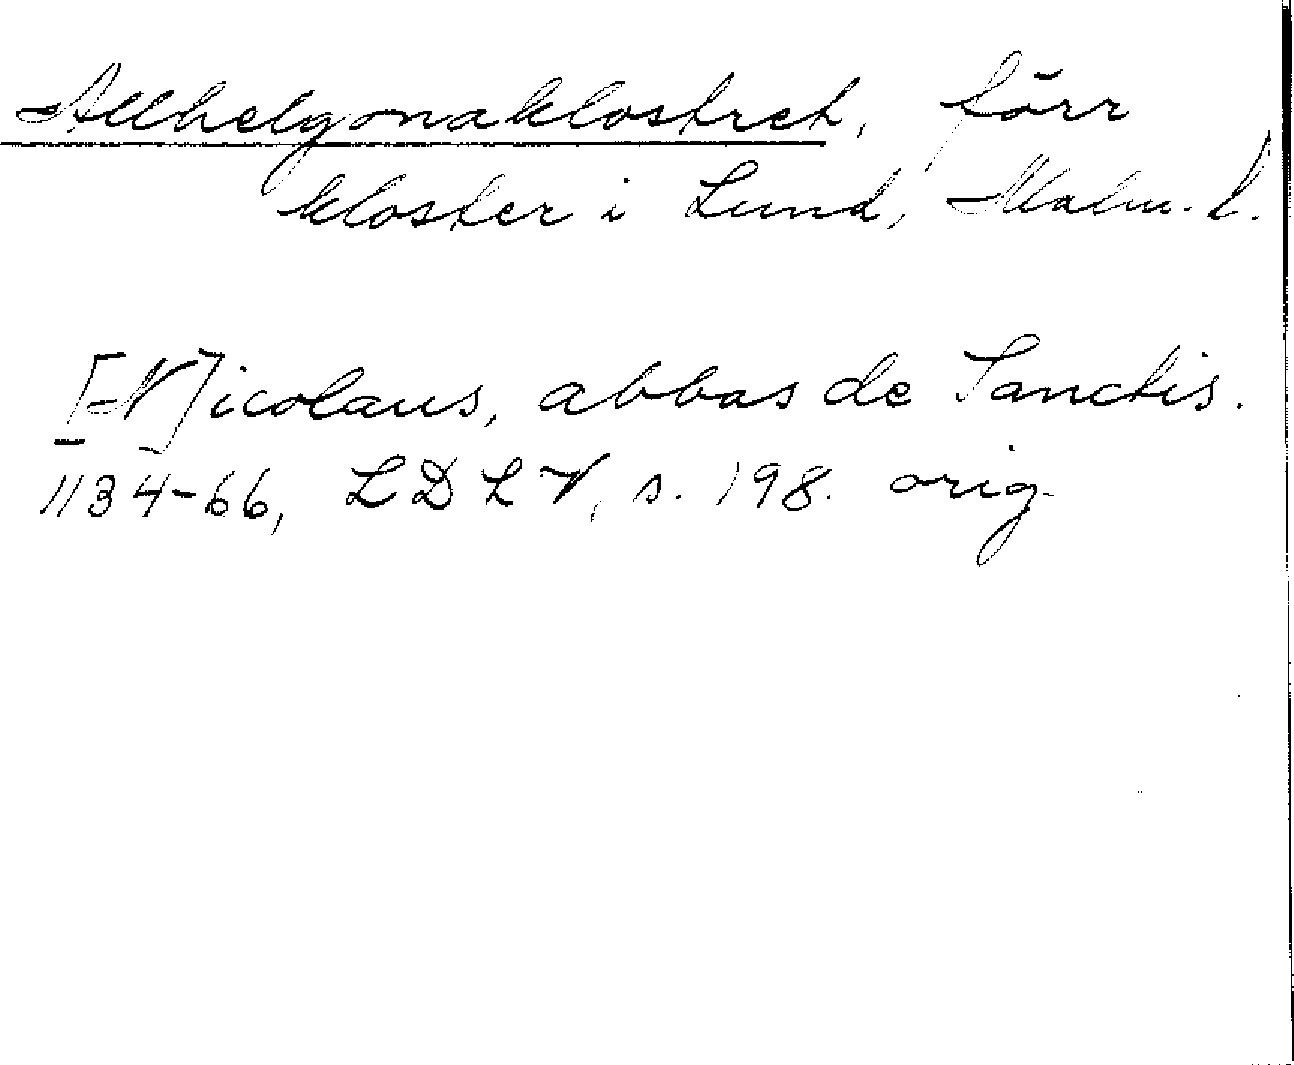 Allhelgonaklostret, förr
kloster i Lund, Malm. l.
[N]icolaus, abbas de Sanctis.
1134-66, LDLV, s. 198. orig.